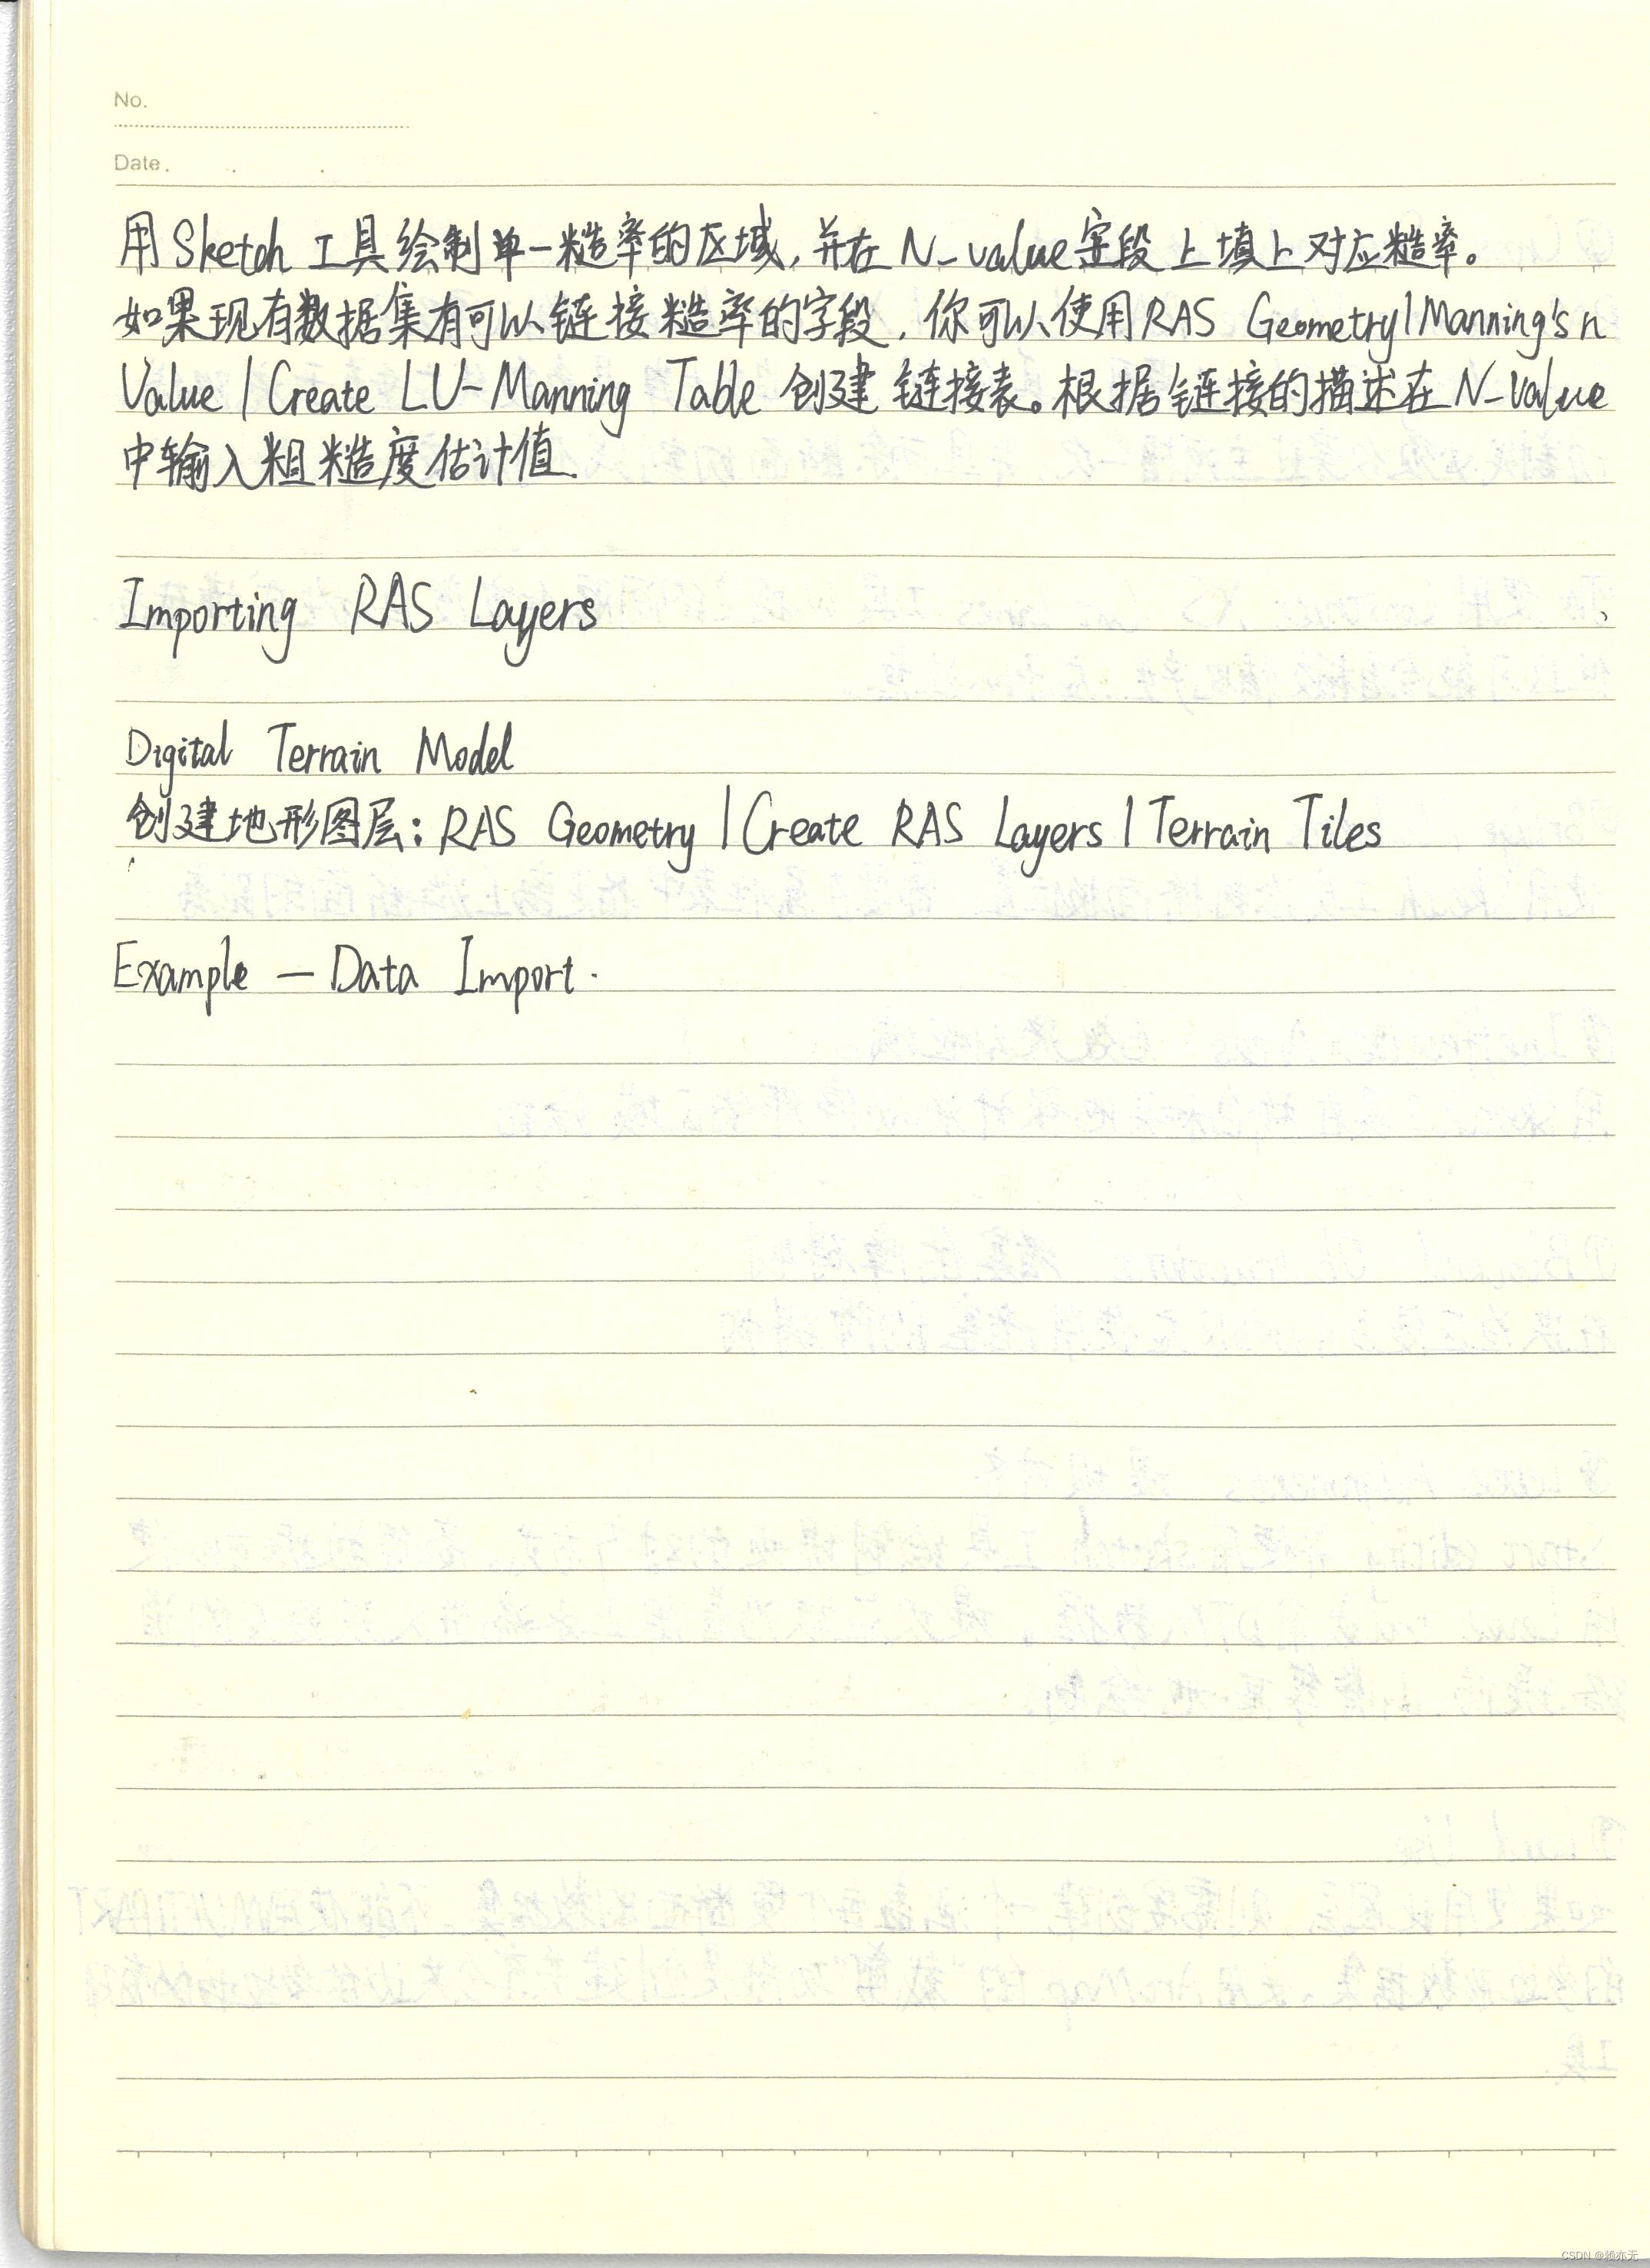 No.
Date.
用Sketch 工具绘制单一糙率的区域,并在 N_value字段上填上对应糙率。
如果现有数据集有可以链接糙率的字段,你可以使用RAS Geometry|Manning's n
Value | Create LU-Manning Table 创建链接表。根据链接的描述在N_Value
中输入粗糙度估计值.
Importing RAS Layers
Digital Terrain Model
创建地形图层: RAS Geometry | Create RAS Layers | Terrain Tiles
Example — Data Import.
CSDN @赖亦无